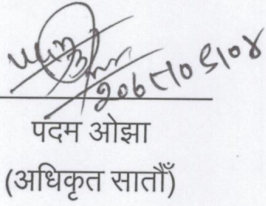 पदम ओझा
(अधिकृत सातौँ)